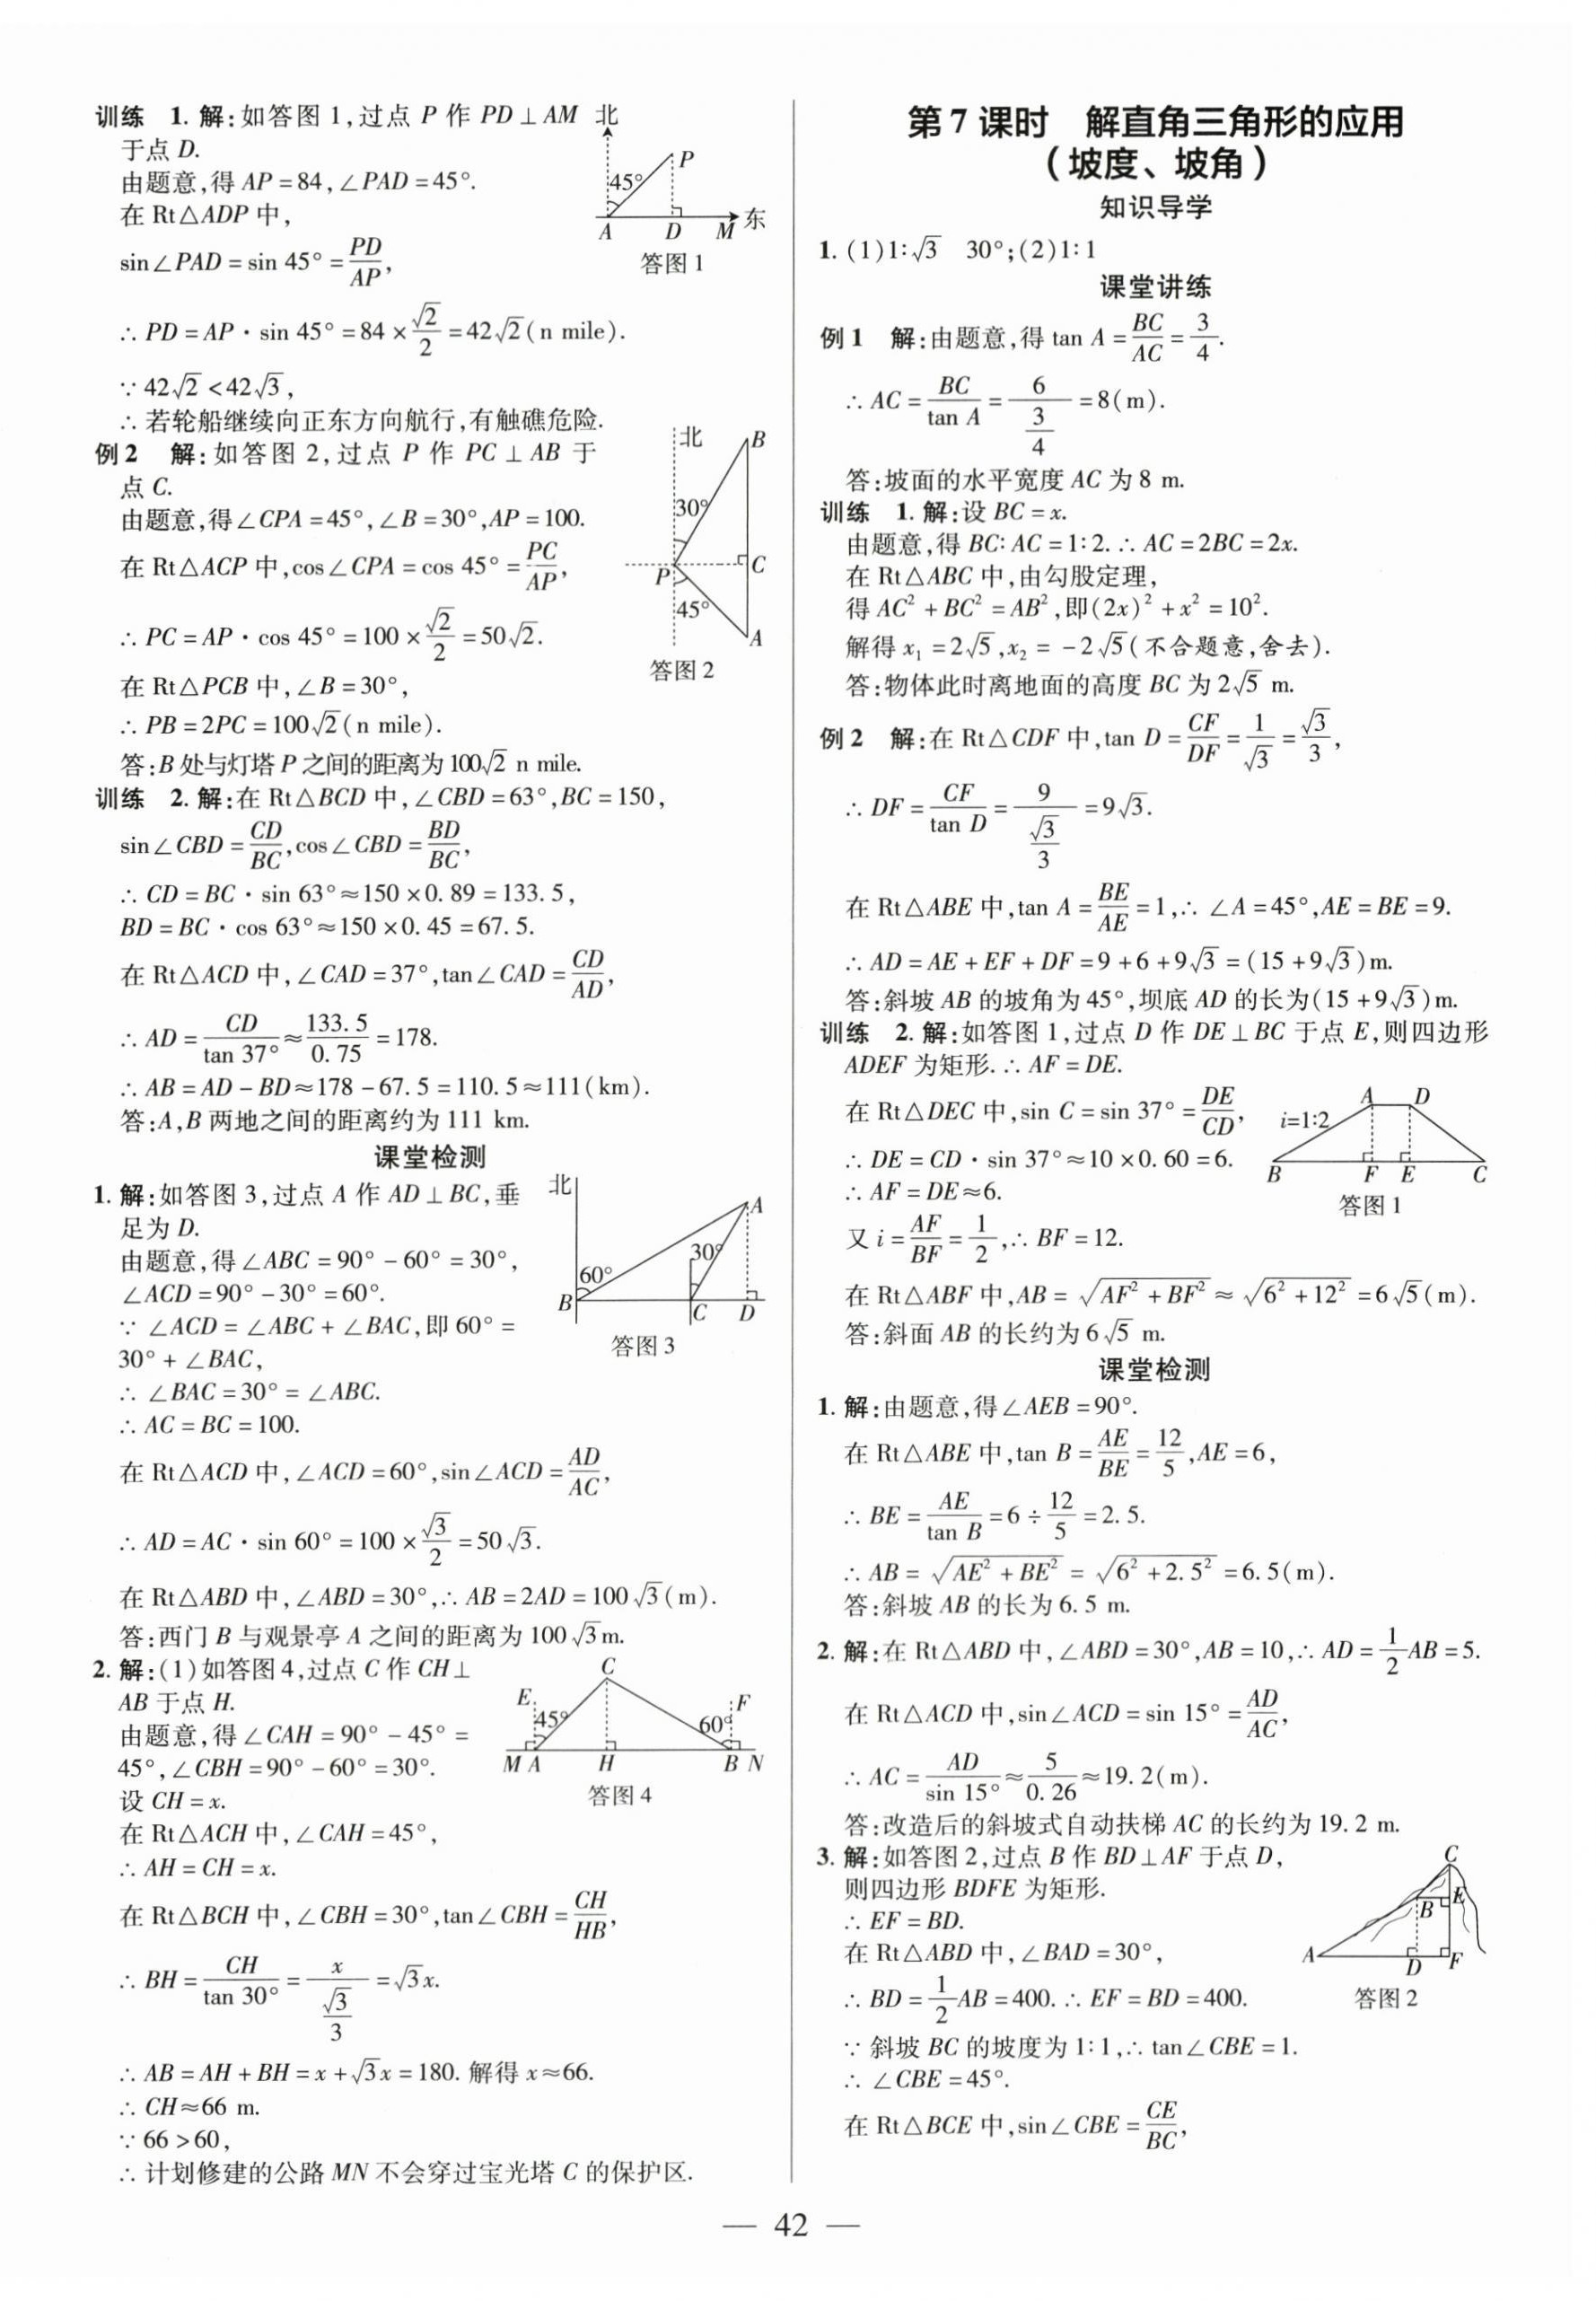 训练 1. 解:如答图 1,过点 P 作 PD⊥AM
于点 D.
由题意,得 AP=84,∠PAD=45°.
在 Rt△ADP 中,
sin∠PAD=sin 45°=PD/AP,
∴ PD=AP·sin 45°=84×√2/2=42√2(n mile).
∵ 42√2<42√3,
∴ 若轮船继续向正东方向航行,有触礁危险.
北
P
45°
A D M 东
答图 1
例 2 解:如答图 2,过点 P 作 PC⊥AB 于
点 C.
由题意,得∠CPA=45°,∠B=30°,AP=100.
在 Rt△ACP 中,cos∠CPA=cos 45°=PC/AP,
∴ PC=AP·cos 45°=100×√2/2=50√2.
在 Rt△PCB 中,∠B=30°,
∴ PB=2PC=100√2(n mile).
答:B 处与灯塔 P 之间的距离为 100√2 n mile.
北 B
30°
P C
45°
A
答图 2
训练 2. 解:在 Rt△BCD 中,∠CBD=63°,BC=150,
sin∠CBD=CD/BC,cos∠CBD=BD/BC,
∴ CD=BC·sin 63°≈150×0.89=133.5,
BD=BC·cos 63°≈150×0.45=67.5.
在 Rt△ACD 中,∠CAD=37°,tan∠CAD=CD/AD,
∴ AD=CD/tan 37°≈133.5/0.75=178.
∴ AB=AD-BD≈178-67.5=110.5≈111(km).
答:A,B 两地之间的距离约为 111 km.
课堂检测
1. 解:如答图 3,过点 A 作 AD⊥BC,垂
足为 D.
由题意,得∠ABC=90°-60°=30°,
∠ACD=90°-30°=60°.
∵ ∠ACD=∠ABC+∠BAC,即 60°=
30°+∠BAC,
∴ ∠BAC=30°=∠ABC.
∴ AC=BC=100.
在 Rt△ACD 中,∠ACD=60°,sin∠ACD=AD/AC,
∴ AD=AC·sin 60°=100×√3/2=50√3.
在 Rt△ABD 中,∠ABD=30°,∴ AB=2AD=100√3(m).
答:西门 B 与观景亭 A 之间的距离为 100√3m.
北
A
30°
60°
B C D
答图 3
2. 解:(1)如答图 4,过点 C 作 CH⊥
AB 于点 H.
由题意,得∠CAH=90°-45°=
45°,∠CBH=90°-60°=30°.
设 CH=x.
在 Rt△ACH 中,∠CAH=45°,
∴ AH=CH=x.
在 Rt△BCH 中,∠CBH=30°,tan∠CBH=CH/HB,
∴ BH=CH/tan 30°=x/(√3/3)=√3x.
∴ AB=AH+BH=x+√3x=180. 解得 x≈66.
∴ CH≈66 m.
∵ 66>60,
∴ 计划修建的公路 MN 不会穿过宝光塔 C 的保护区.
C
E F
45° 60°
M A H B N
答图 4
第 7 课时 解直角三角形的应用
(坡度、坡角)
知识导学
1. (1)1∶√3 30°;(2)1∶1
课堂讲练
例 1 解:由题意,得 tan A=BC/AC=3/4.
∴ AC=BC/tan A=6/(3/4)=8(m).
答:坡面的水平宽度 AC 为 8 m.
训练 1. 解:设 BC=x.
由题意,得 BC∶AC=1∶2. ∴ AC=2BC=2x.
在 Rt△ABC 中,由勾股定理,
得 AC²+BC²=AB²,即(2x)²+x²=10².
解得 x₁=2√5,x₂=-2√5(不合题意,舍去).
答:物体此时离地面的高度 BC 为 2√5 m.
例 2 解:在 Rt△CDF 中,tan D=CF/DF=1/√3=√3/3,
∴ DF=CF/tan D=9/(√3/3)=9√3.
在 Rt△ABE 中,tan A=BE/AE=1,∴ ∠A=45°,AE=BE=9.
∴ AD=AE+EF+DF=9+6+9√3=(15+9√3)m.
答:斜坡 AB 的坡角为 45°,坝底 AD 的长为(15+9√3)m.
训练 2. 解:如答图 1,过点 D 作 DE⊥BC 于点 E,则四边形
ADEF 为矩形. ∴ AF=DE.
在 Rt△DEC 中,sin C=sin 37°=DE/CD,
∴ DE=CD·sin 37°≈10×0.60=6.
∴ AF=DE≈6.
又 i=AF/BF=1/2,∴ BF=12.
在 Rt△ABF 中,AB=√(AF²+BF²)≈√(6²+12²)=6√5(m).
答:斜面 AB 的长约为 6√5 m.
A D
i=1∶2
B F E C
答图 1
课堂检测
1. 解:由题意,得∠AEB=90°.
在 Rt△ABE 中,tan B=AE/BE=12/5,AE=6,
∴ BE=AE/tan B=6÷12/5=2.5.
∴ AB=√(AE²+BE²)=√(6²+2.5²)=6.5(m).
答:斜坡 AB 的长为 6.5 m.
2. 解:在 Rt△ABD 中,∠ABD=30°,AB=10,∴ AD=1/2AB=5.
在 Rt△ACD 中,sin∠ACD=sin 15°=AD/AC,
∴ AC=AD/sin 15°≈5/0.26≈19.2(m).
答:改造后的斜坡式自动扶梯 AC 的长约为 19.2 m.
3. 解:如答图 2,过点 B 作 BD⊥AF 于点 D,
则四边形 BDFE 为矩形.
∴ EF=BD.
在 Rt△ABD 中,∠BAD=30°,
∴ BD=1/2AB=400. ∴ EF=BD=400.
∵ 斜坡 BC 的坡度为 1∶1,∴ tan∠CBE=1.
∴ ∠CBE=45°.
在 Rt△BCE 中,sin∠CBE=CE/BC,
C
B E
A D F
答图 2
— 42 —